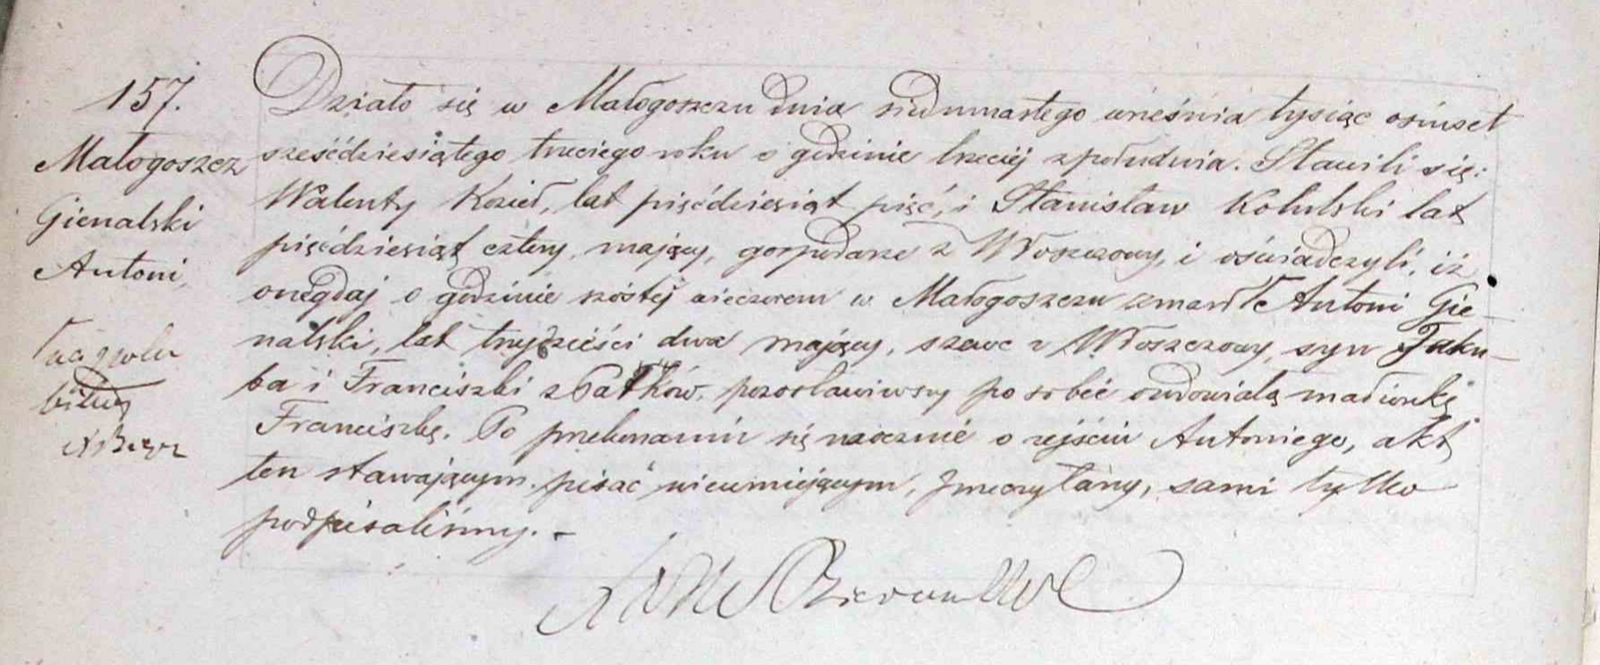 157.
Małogoszcz
Gienalski
Antoni,
Działo się w Małogoszczu dnia siedmnastego września tysiąc ośmset
sześćdziesiątego trzeciego roku o godzinie trzeciej z południa. Stawili się:
Walenty Kozieł, lat pięćdziesiąt pięć, i Stanisław lat
pięćdziesiąt cztery, mający, gospodarze z Włoszczowy, i oświadczyli, iż
onegdaj o godzinie szóstej wieczorem w Małogoszczu zmarł Antoni Gie-
nalski, lat trzydzieści dwa mający, szewc z Włoszczowy, syn Jaku-
ba i Franciszki z Pałków, pozostawiwszy po sobie owdowiałą małżonkę
Franciszkę. Po przekonaniu się naocznie o zejściu Antoniego, akt
ten stawającym, pisać nieumiejącym, przeczytany, sami tylko
podpisaliśmy. -